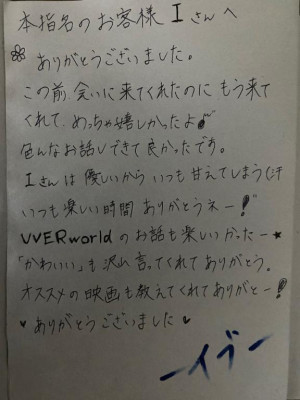 本指名のお客様 Iさんへ
ありがとうございました。
この前、会いに来てくれたのに もう来て
くれて、めっちゃ嬉しかったよ
色んなお話しできて良かったです。
Iさんは 優しいから いつも 甘えてしまうけど
いつも楽しい時間 ありがとうネー!
UVERworld のお話も楽しかったー★
「かわいい」も沢山 言ってくれて ありがとう。
オススメの映画も教えてくれてありがとー!
♥ ありがとうございました ♥
ーイヴー